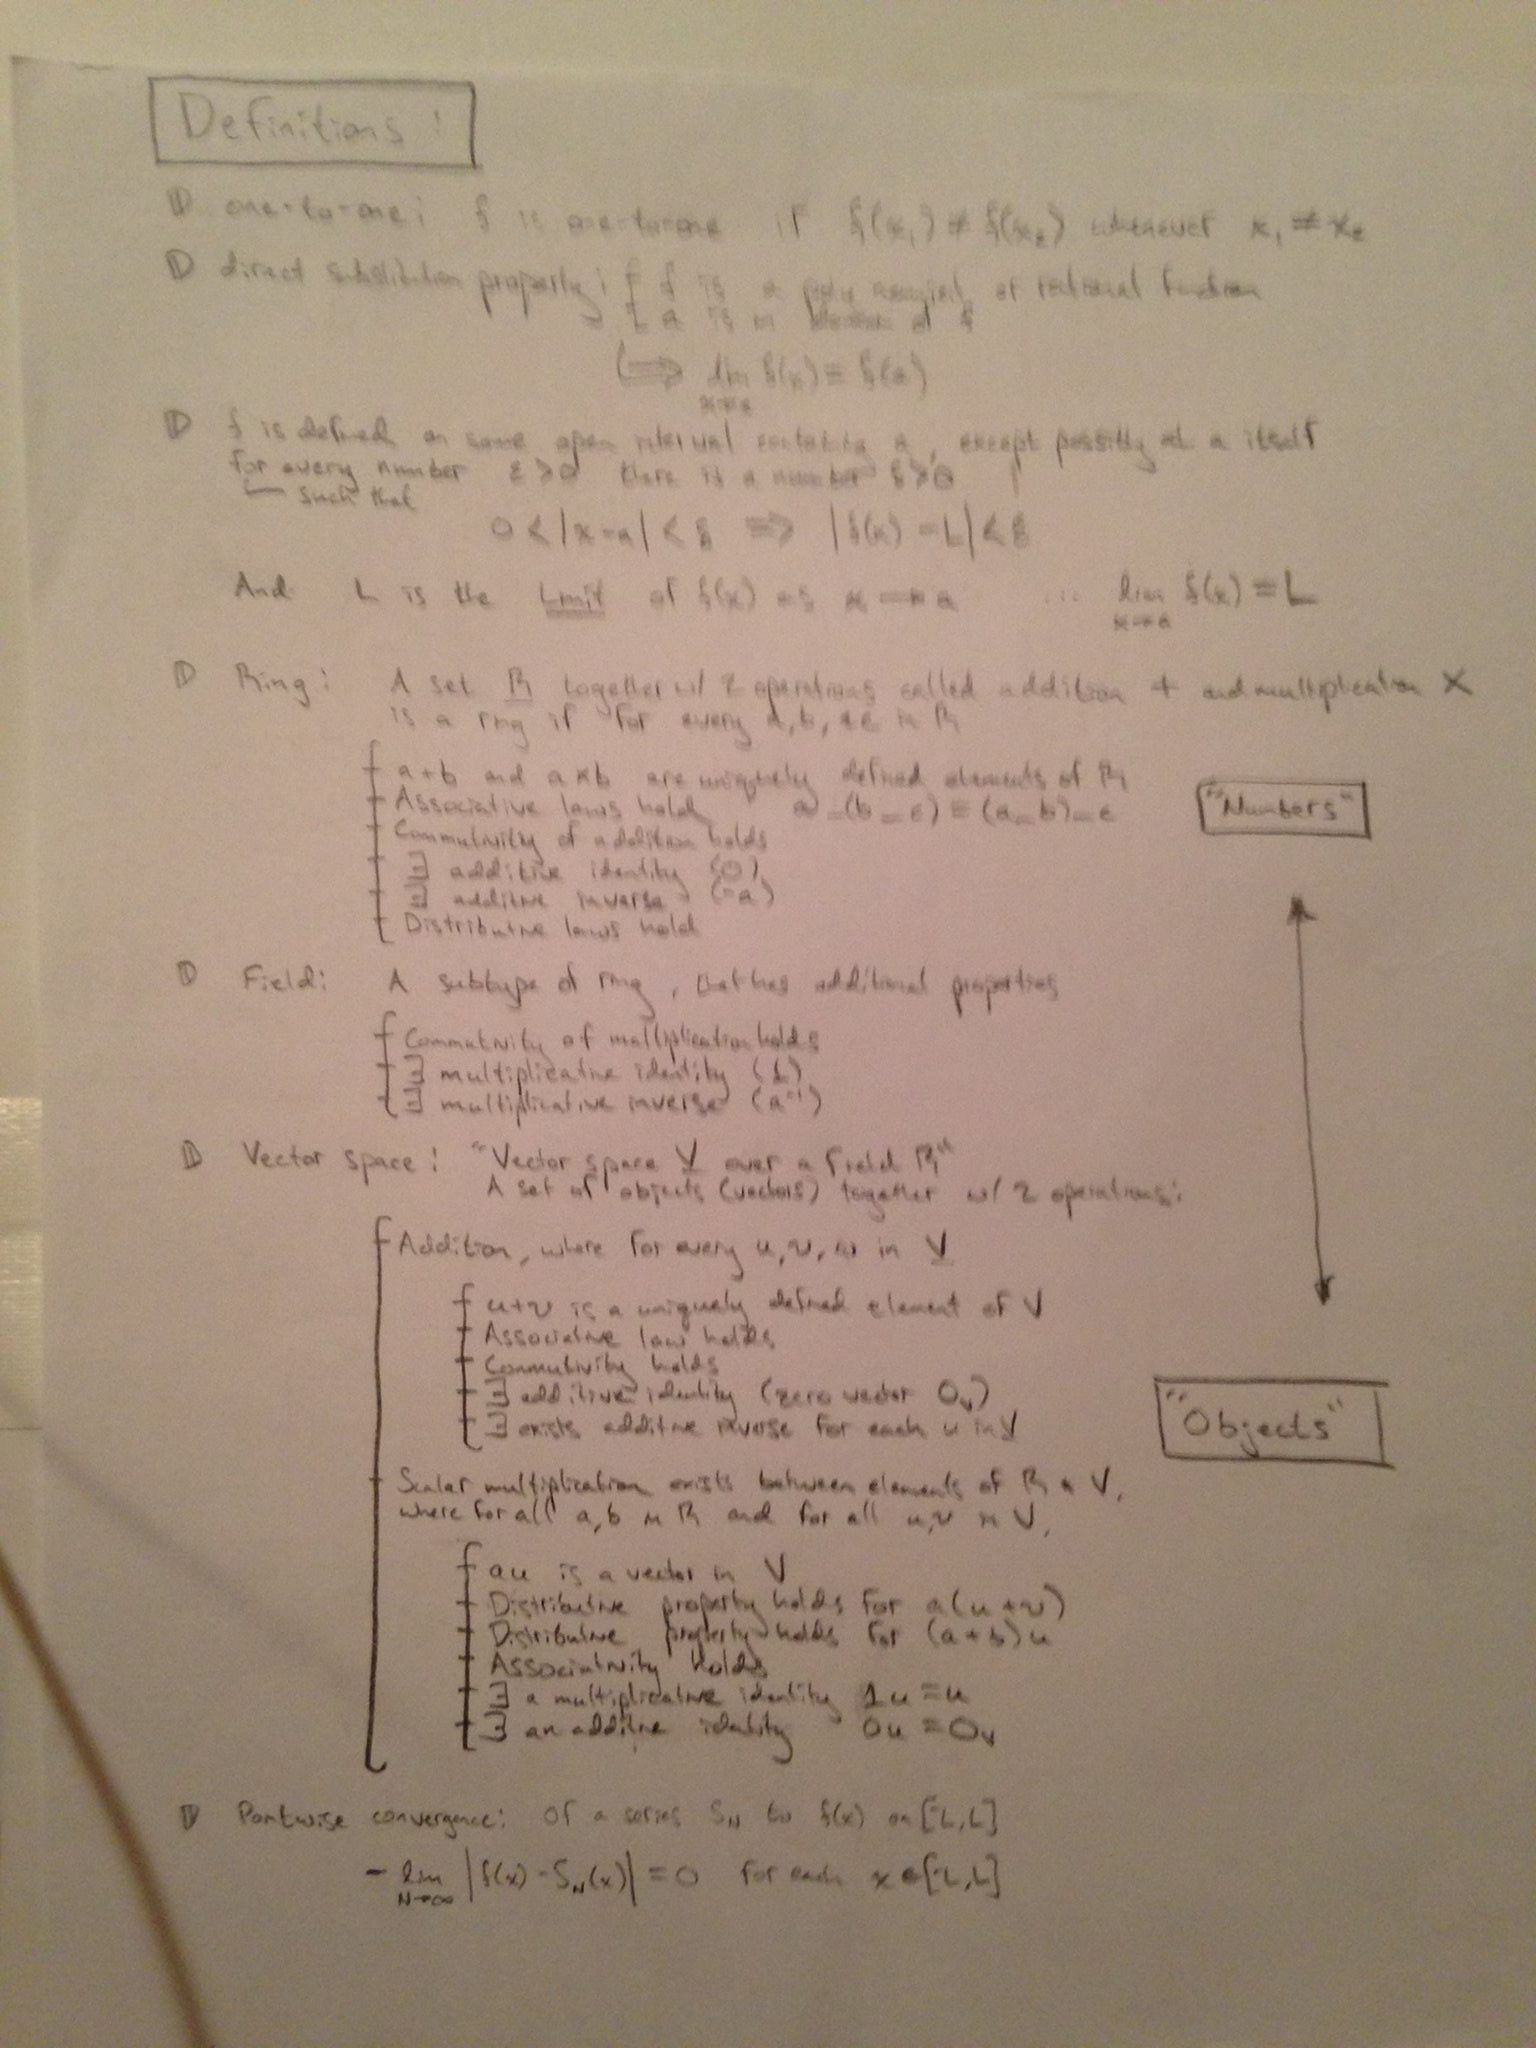 Definitions:
D one-to-one: f is one-to-one if f(x₁) ≠ f(x₂) whenever x₁ ≠ x₂
D direct substitution property: { f is a polynomial or rational function
a is in domain of f
⟹ lim f(x) = f(a)
x→a
D f is defined on some open interval containing a, except possibly at a itself
for every number ε>0 there is a number δ>0
such that
0 < |x-a| < δ ⟹ |f(x) - L| < ε
And L is the Limit of f(x) as x → a ... lim f(x) = L
x→a
D Ring: A set R together w/ 2 operations called addition + and multiplication ×
is a ring if for every a, b, & c in R
a+b and a×b are uniquely defined elements of R
Associative laws hold a_(b_c) = (a_b)_c
Commutivity of addition holds
∃ additive identity (0)
∃ additive inverse (-a)
Distributive laws hold
"Numbers"
D Field: A subtype of ring, that has additional properties
Commutivity of multiplication holds
∃ multiplicative identity (1)
∃ multiplicative inverse (a⁻¹)
D Vector space: "Vector space V over a field R"
A set of objects (vectors) together w/ 2 operations:
Addition, where for every u, v, w in V
u+v is a uniquely defined element of V
Associative law holds
Commutivity holds
∃ additive identity (zero vector 0ᵥ)
∃ exists additive inverse for each u in V
"Objects"
Scalar multiplication exists between elements of R & V,
where for all a, b in R and for all u, v in V,
au is a vector in V
Distributive property holds for a(u+v)
Distributive property holds for (a+b)u
Associativity holds
∃ a multiplicative identity 1u = u
∃ an additive identity 0u = 0ᵥ
D Pointwise convergence: Of a series S_N to f(x) on [-L, L]
- lim |f(x) - S_N(x)| = 0 for each x ∈ [-L, L]
N→∞